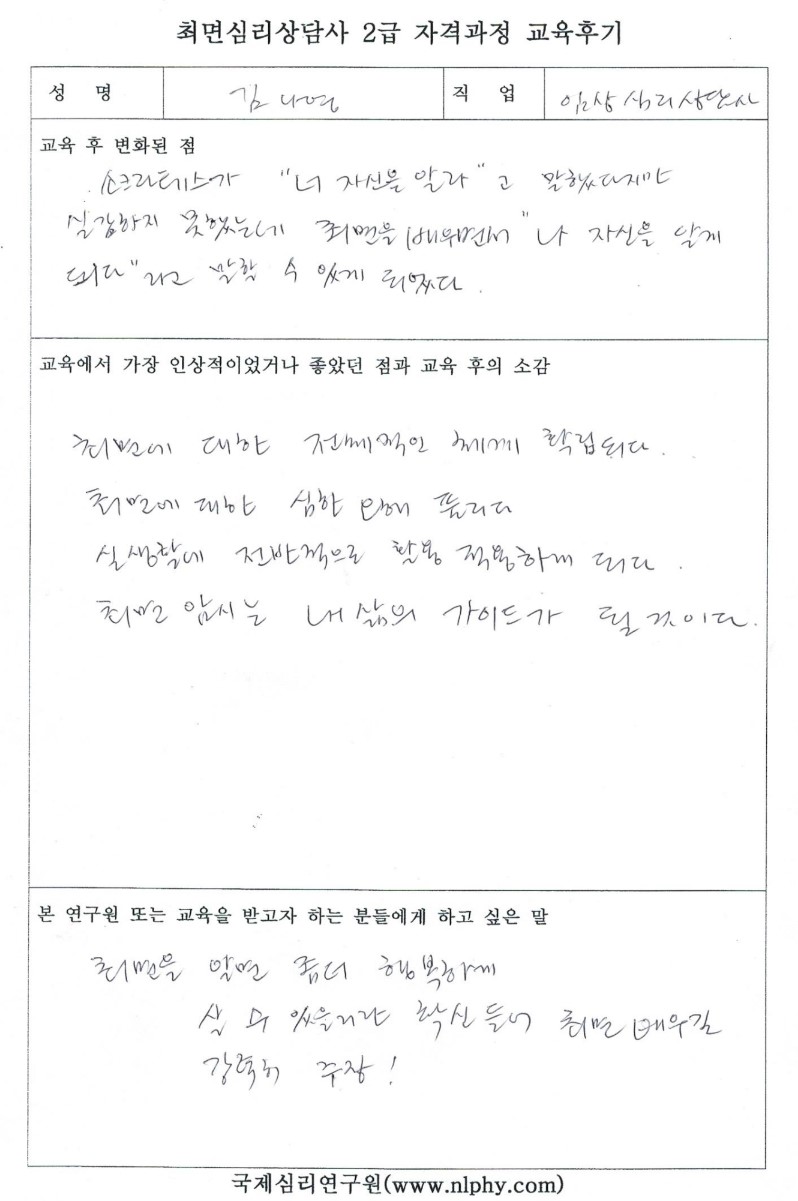 최면심리상담사 2급 자격과정 교육후기
성 명 김나영 직 업 임상심리상담사
교육 후 변화된 점
소크라테스가 "너 자신을 알라"고 말했다지만
실감하지 못했는데 최면을 배우면서 "나 자신을 알게
되다"라고 말할 수 있게 되었다.
교육에서 가장 인상적이었거나 좋았던 점과 교육 후의 소감
최면에 대한 전체적인 체계 확립되다.
최면에 대한 심한 오해 풀리다
실생활에 전반적으로 활용 적용하게 되다.
최면 암시는 내 삶의 가이드가 될 것이다.
본 연구원 또는 교육을 받고자 하는 분들에게 하고 싶은 말
최면을 알면 좀더 행복하게
살 수 있을리라 확신 들어 최면 배우길
강력히 주장!
국제심리연구원(www.nlphy.com)